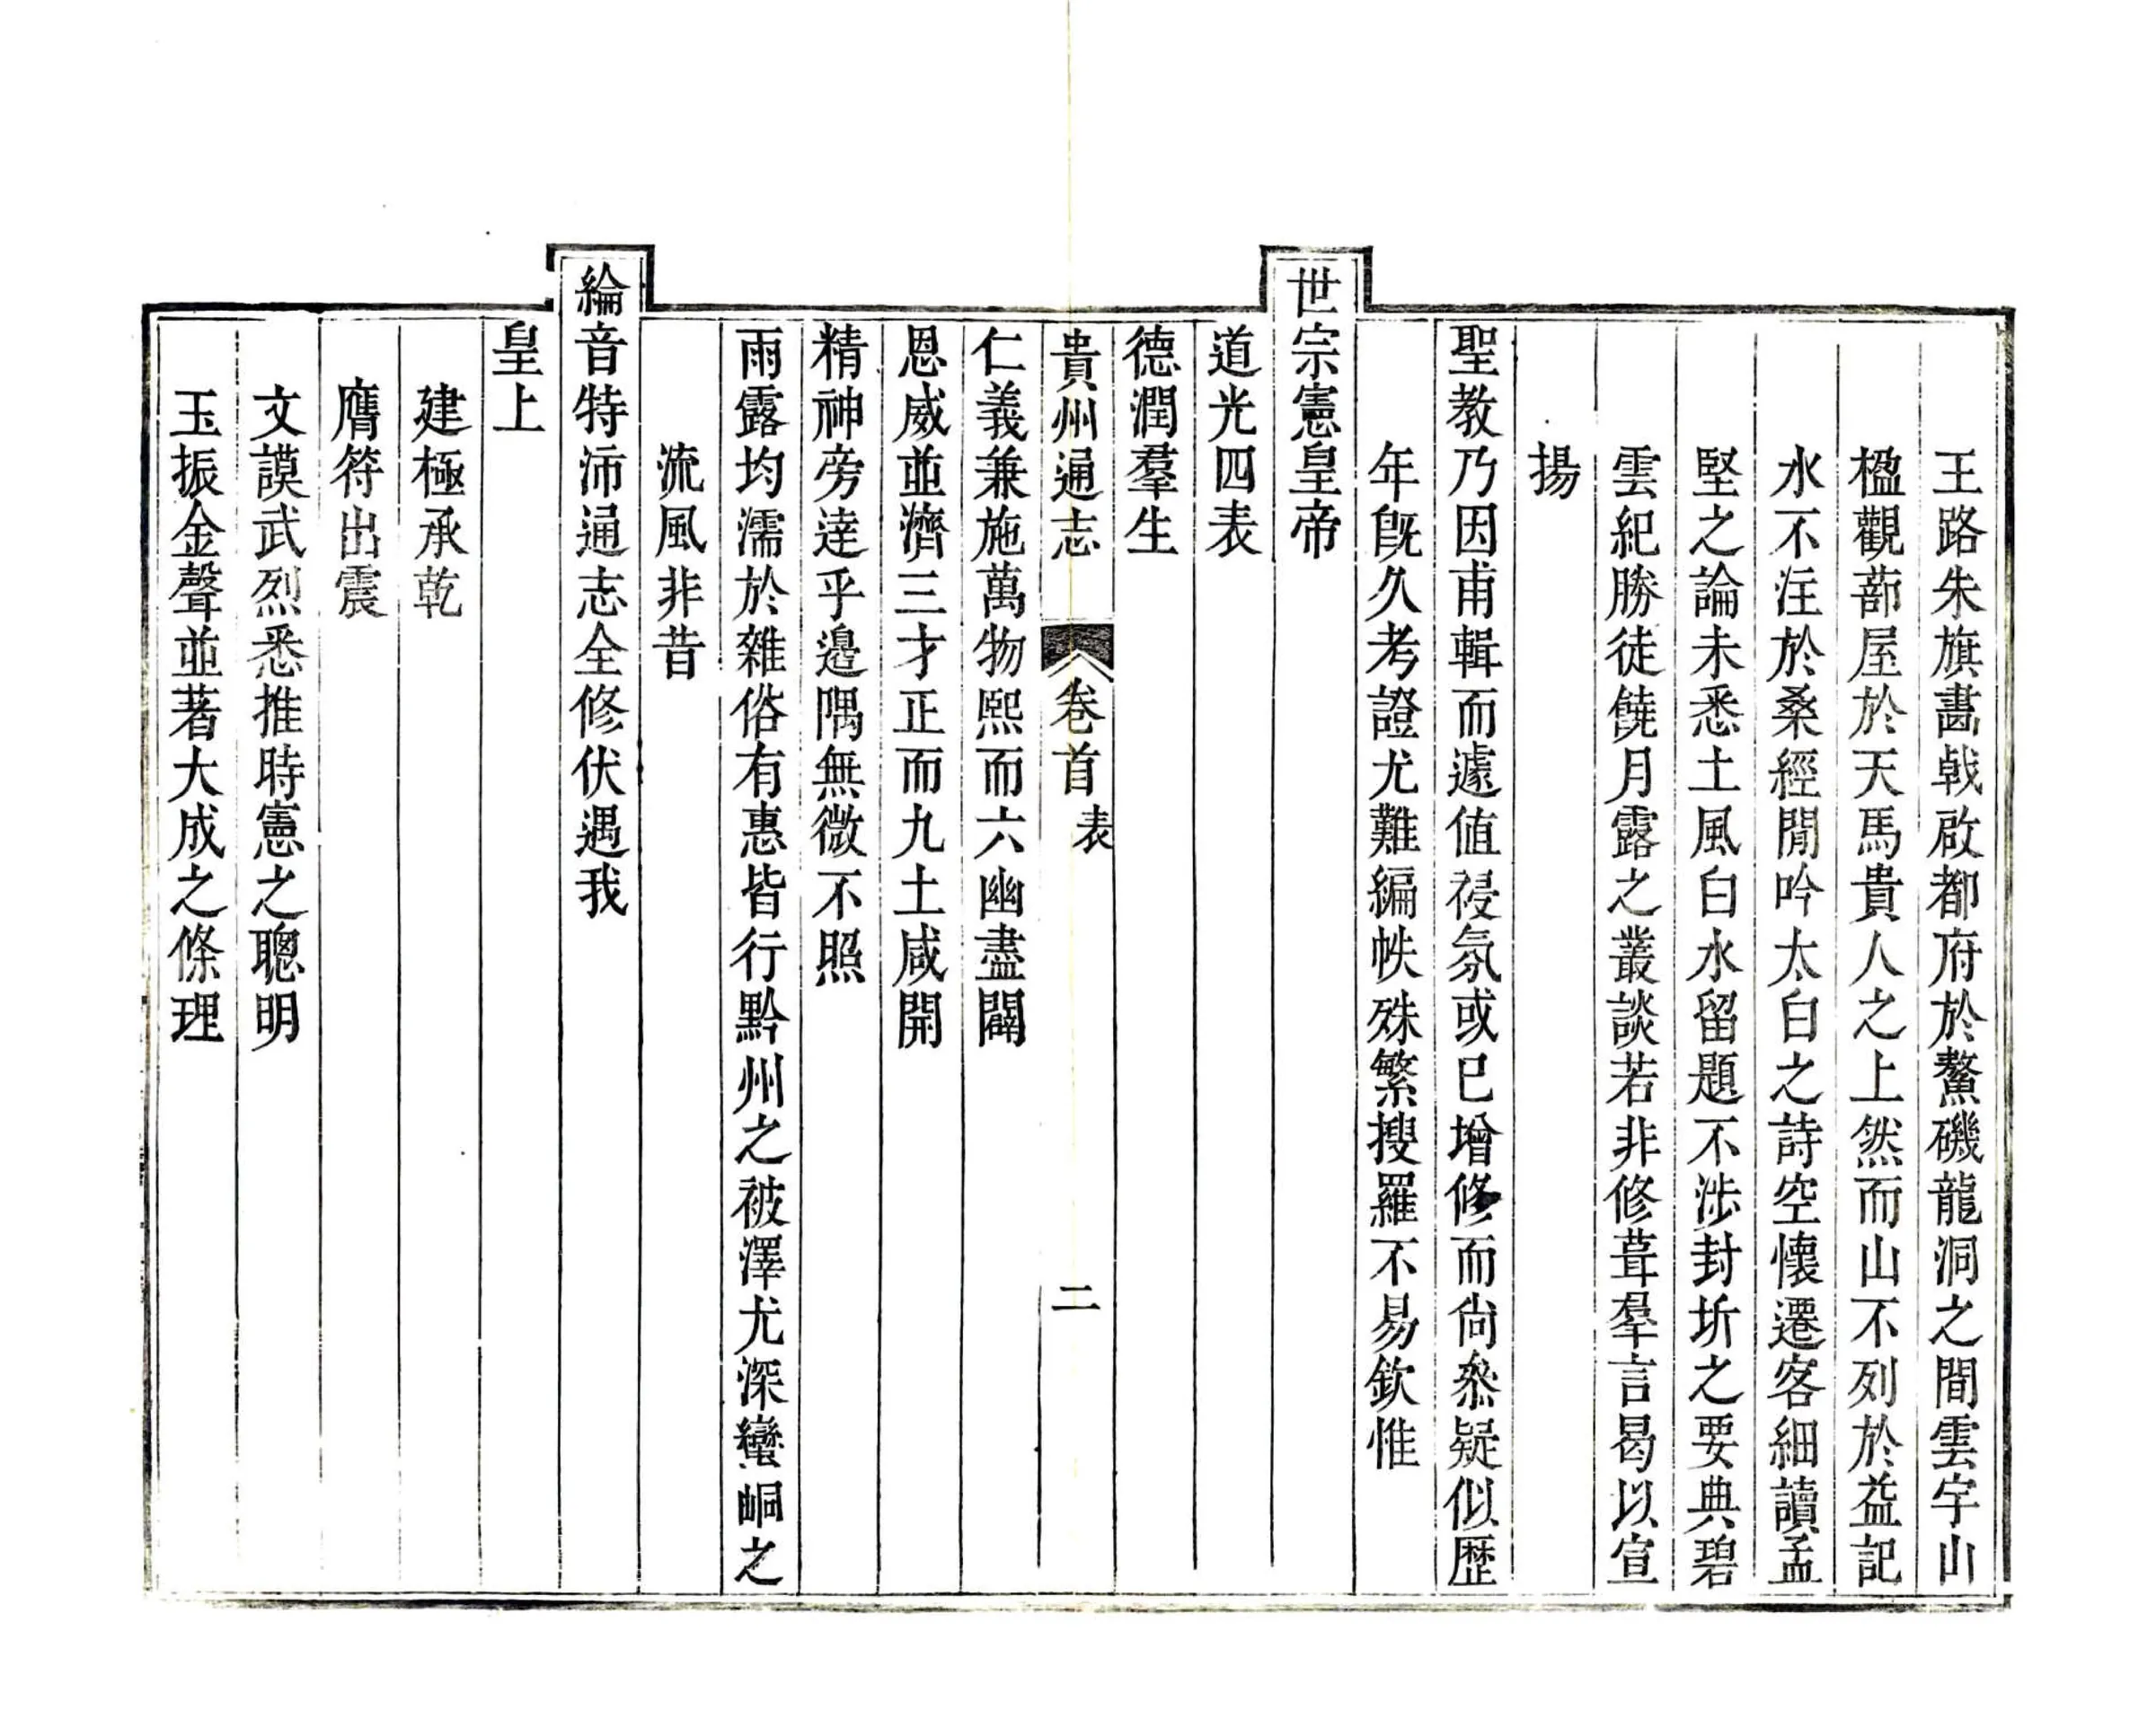 王路朱旗畵戟啟都府於鰲磯龍洞之間雲宇山
楹觀蔀屋於天馬貴人之上然而山不列於益記
水不注於桑經閒吟太白之詩空懷遷客細讀孟
堅之論未悉土風白水留題不涉封圻之要典碧
雲紀勝徒饒月露之叢談若非修葺羣言曷以宣
揚
聖教乃因甫輯而遽值祲氛或已增修而尚叅疑似歷
年旣久考證尤難編帙殊繁搜羅不易欽惟
世宗憲皇帝
道光四表
德潤羣生
貴州通志 卷首 表 二
仁義兼施萬物熙而六幽盡闢
恩威並濟三才正而九土咸開
精神旁達乎邊隅無微不照
雨露均濡於雜俗有惠皆行黔州之被澤尤深蠻峒之
流風非昔
綸音特沛通志全修伏遇我
皇上
建極承乾
膺符出震
文謨武烈悉推時憲之聰明
玉振金聲並著大成之條理